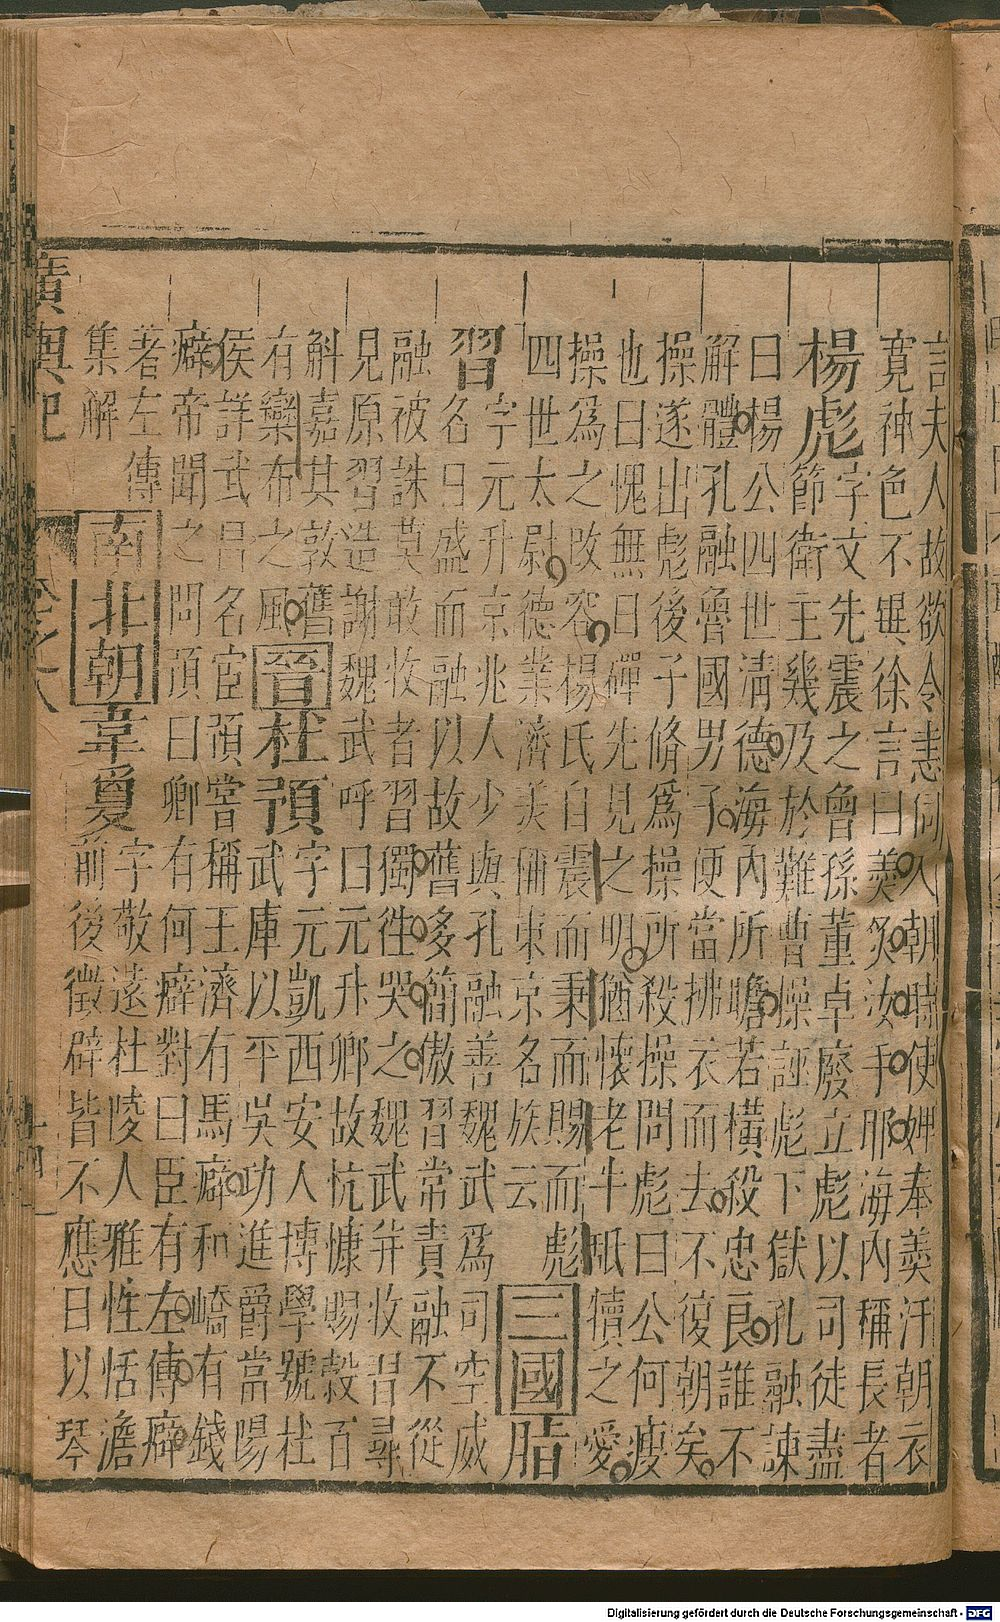 言夫人故欲令恚伺入朝時使婢奉羹汗朝衣
寛神色不異徐言曰羹爛汝手耶海內稱長者
楊彪字文先震之曾孫董卓廢立彪以司徒盡
節衛主幾及於難曹操誣彪下獄孔融諫
曰楊公四世淸德海內所瞻若橫殺忠良誰不
解體孔融魯國男子便當拂衣而去不復朝矣
操遂出彪後子脩爲操所殺操問彪曰公何瘦
也曰愧無日磾先見之明猶懷老牛舐犢之愛
操爲之改容楊氏自震而秉而賜而彪
四世太尉德業濟美爲東京名族云
三國
脂
習字元升京兆人少與孔融善魏武爲司空威
名日盛而融以故舊多簡傲習常責融不從
融被誅莫敢收者習獨徃哭之魏武幷收昔尋
見原習造謝魏武呼曰元升卿故忼慷賜穀百
斛嘉其敦舊
有欒布之風
晉
杜預字元凱西安人博學號杜
武庫以平吳功進爵當陽
侯詳武昌名宦預嘗稱王濟有馬癖和嶠有錢
癖帝聞之問預曰卿有何癖對曰臣有左傳癖
著左傳
集解
南北朝
韋夐字敬遠杜陵人雅性恬澹
前後徵辟皆不應日以琴
廣輿記
卷之八
十四
Digitalisierung gefördert durch die Deutsche Forschungsgemeinschaft - DFG